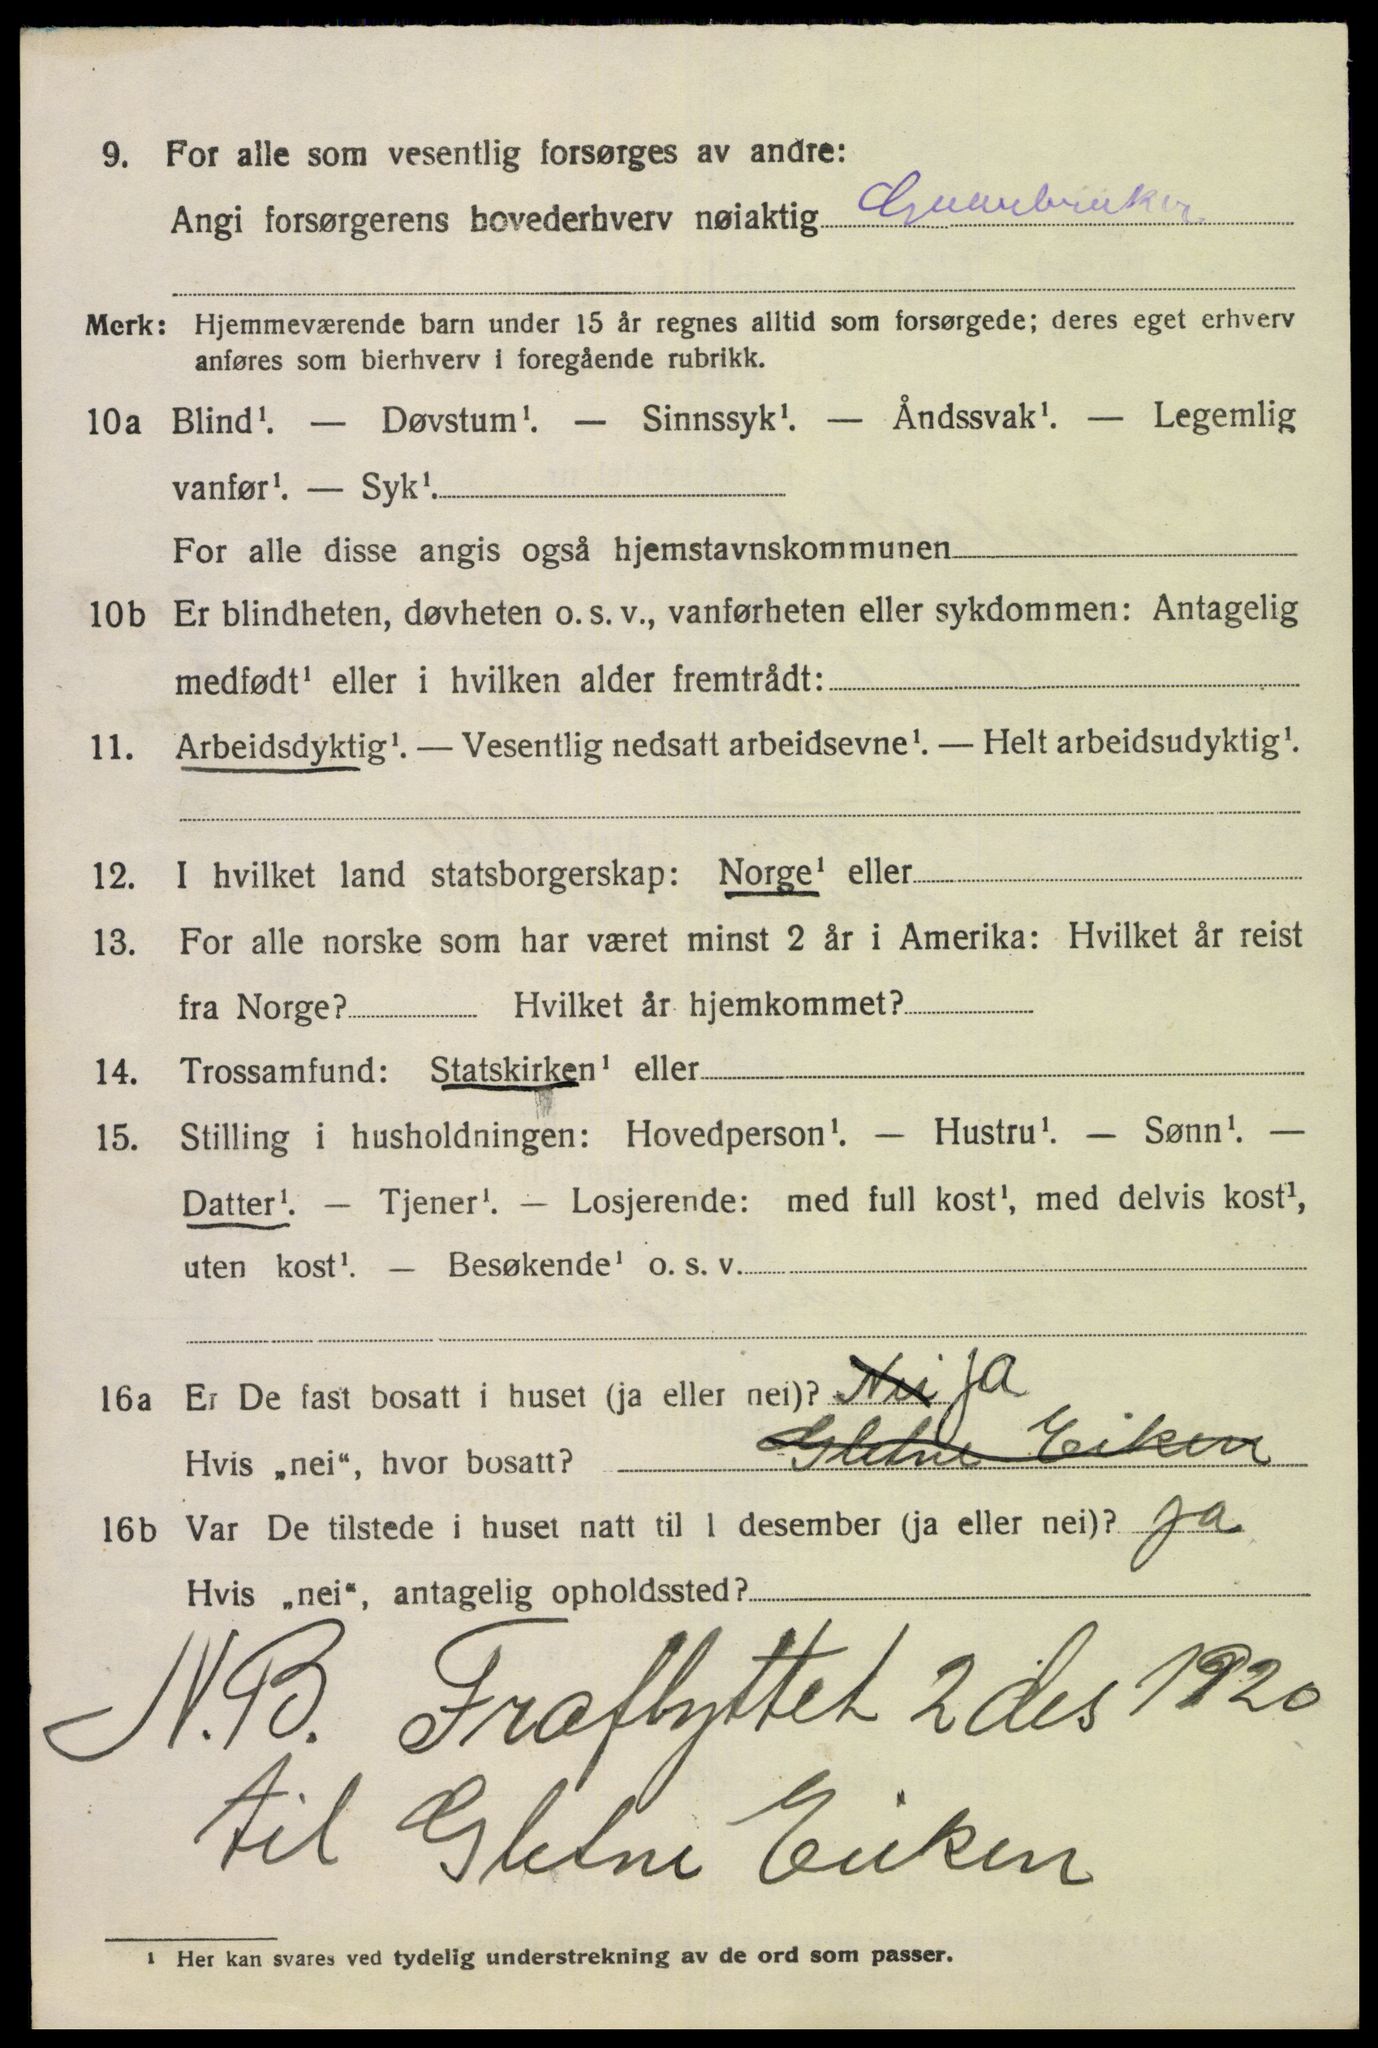 9. For alle som vesentlig forsørges av andre:
Angi forsørgerens hovederhverv nøiaktig Gaardbruker
Merk: Hjemmeværende barn under 15 år regnes alltid som forsørgede; deres eget erhverv
anføres som bierhverv i foregående rubrikk.
10a Blind¹. — Døvstum¹. — Sinnssyk¹. — Åndssvak¹. — Legemlig
vanfør¹. — Syk¹.
For alle disse angis også hjemstavnskommunen
10b Er blindheten, døvheten o. s. v., vanførheten eller sykdommen: Antagelig
medfødt¹ eller i hvilken alder fremtrådt:
11. Arbeidsdyktig¹. — Vesentlig nedsatt arbeidsevne¹. — Helt arbeidsudyktig¹.
12. I hvilket land statsborgerskap: Norge¹ eller
13. For alle norske som har været minst 2 år i Amerika: Hvilket år reist
fra Norge? Hvilket år hjemkommet?
14. Trossamfund: Statskirken¹ eller
15. Stilling i husholdningen: Hovedperson¹. — Hustru¹. — Sønn¹. —
Datter¹. — Tjener¹. — Losjerende: med full kost¹, med delvis kost¹,
uten kost¹. — Besøkende¹ o. s. v.
16a Er De fast bosatt i huset (ja eller nei)? Nei ja
Hvis „nei“, hvor bosatt? Gletne Eiken
16b Var De tilstede i huset natt til 1 desember (ja eller nei)? ja
Hvis „nei“, antagelig opholdssted?
N.B. Fraflyttet 2 des 1920
til Gletne Eiken
¹ Her kan svares ved tydelig understrekning av de ord som passer.